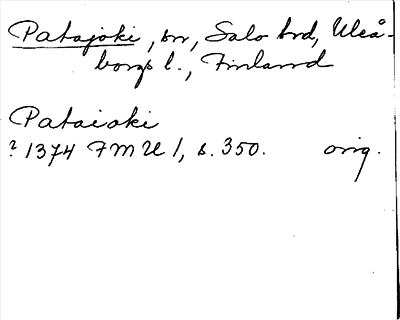 Patajoki, sn, Salo hrd, Uleå-
borgs l., Finland
Pataioki
? 1374 FMU 1, s. 350. orig.